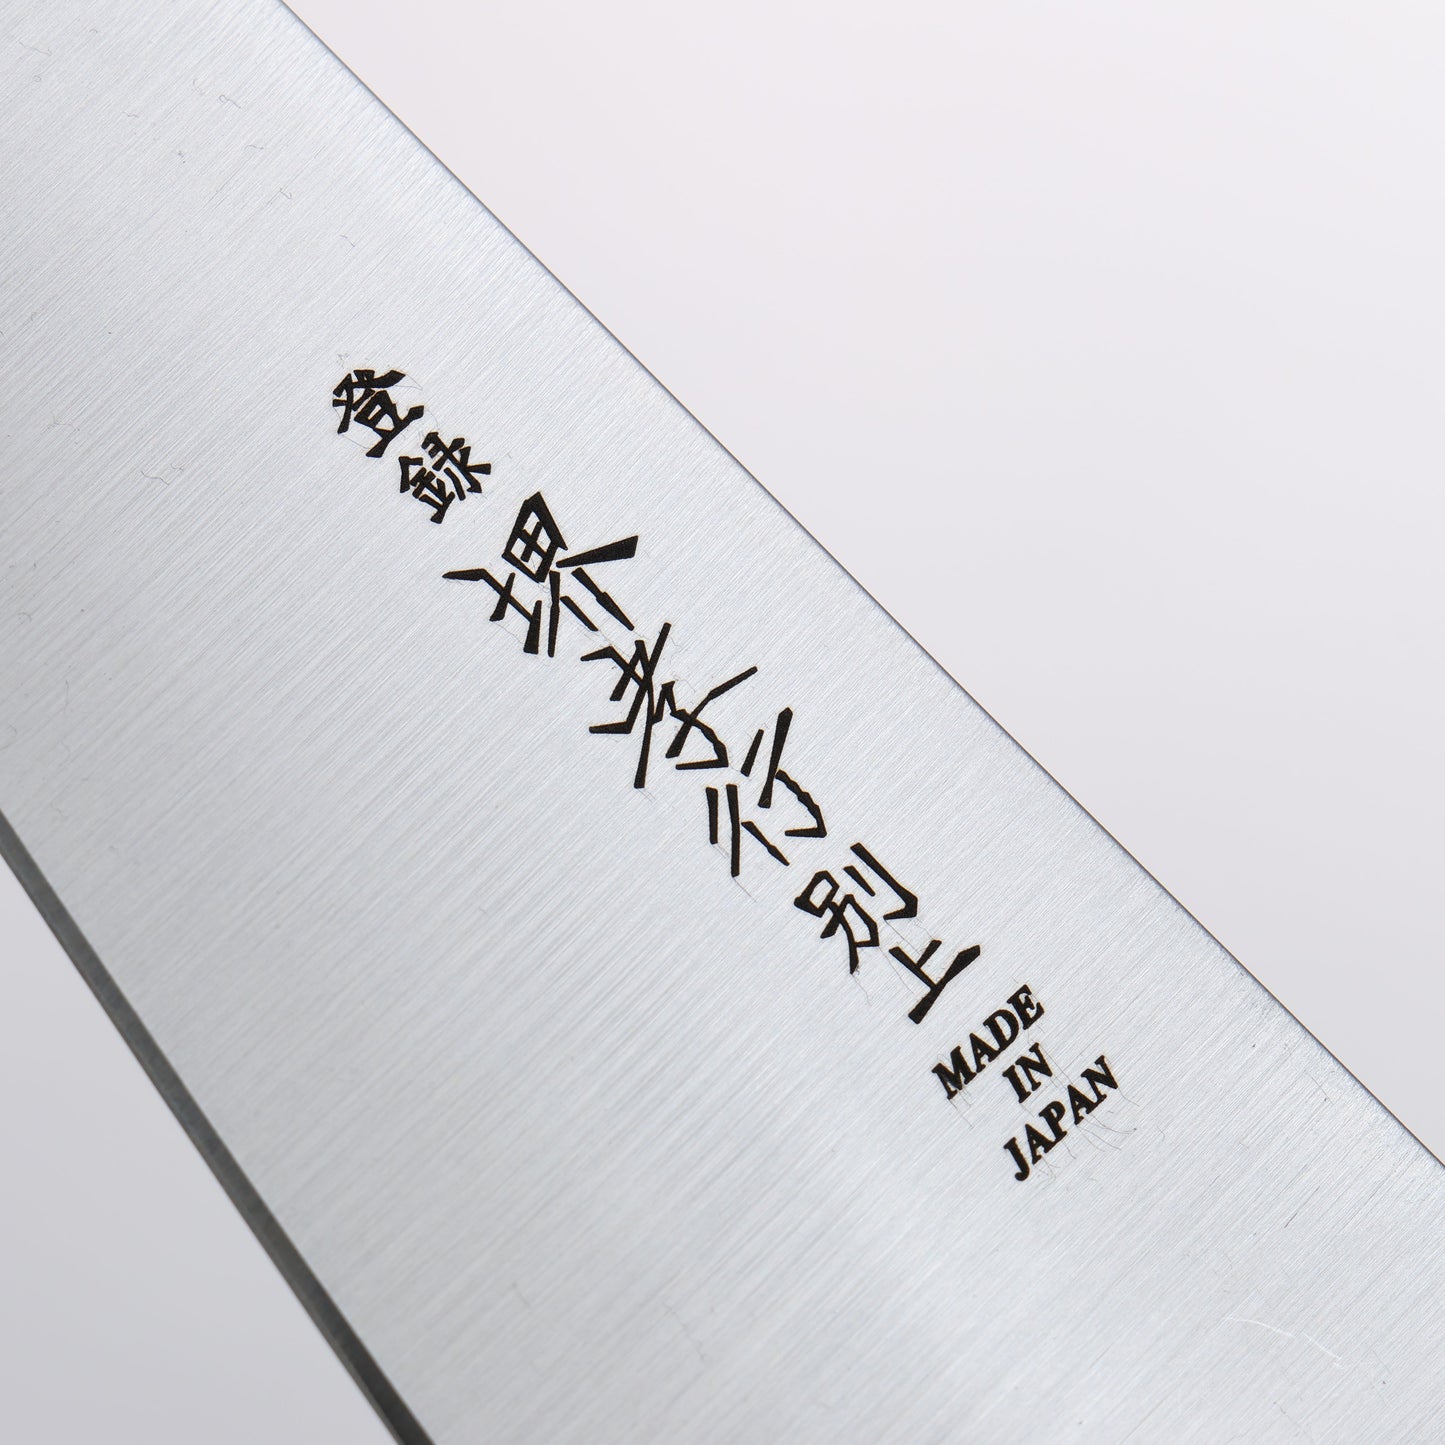 登録
堺孝行
別上
MADE
IN
JAPAN